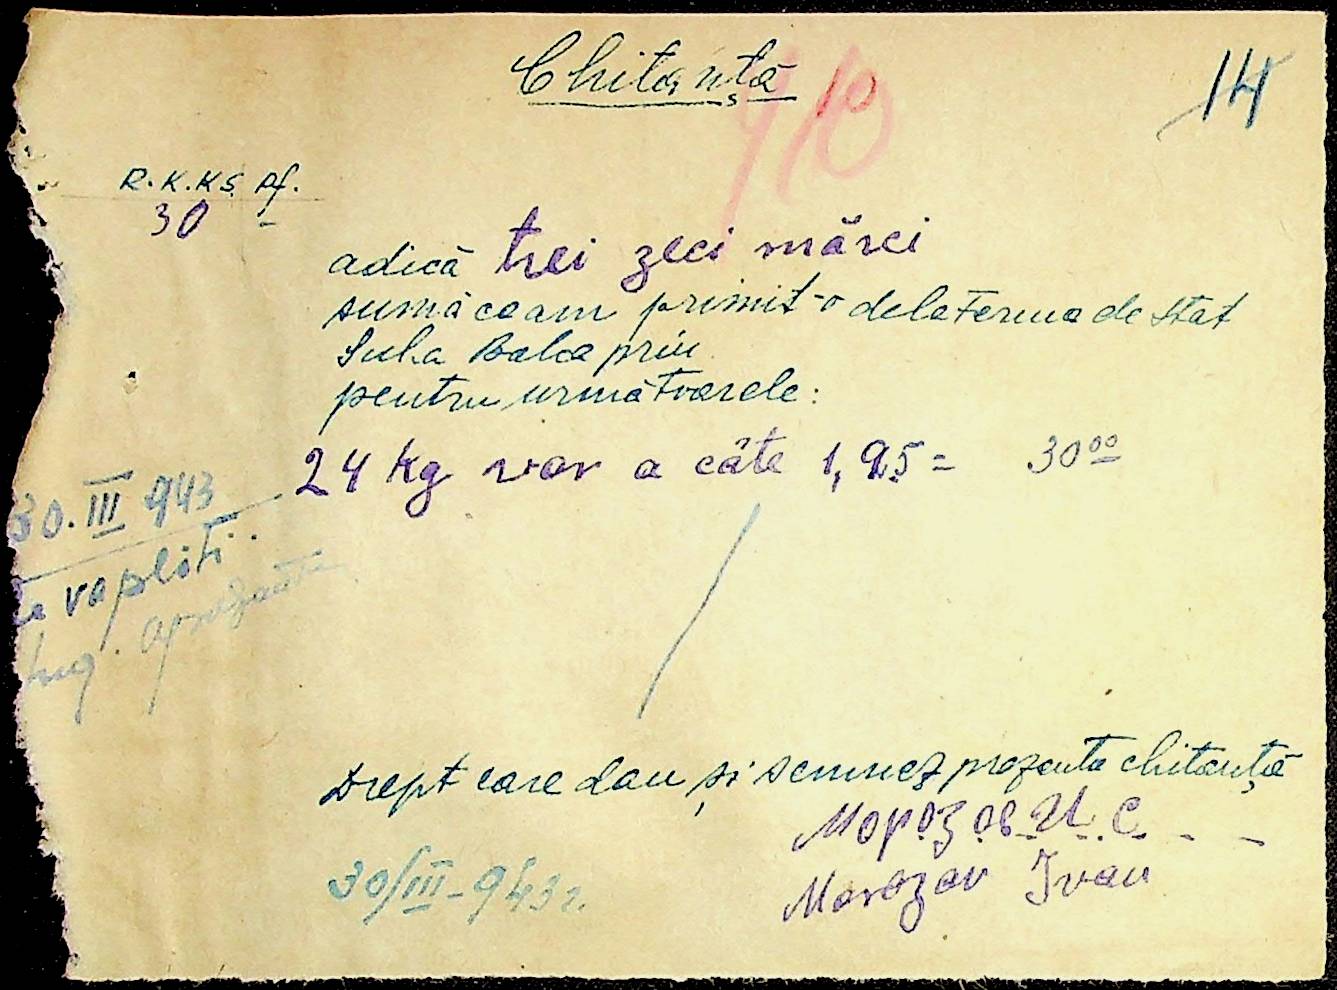 Chitanță
910
14
R.K.KS. pf.
30
adică trei zeci mărci
sumă ce am primit-o dela Ferma de Stat
Suha Balca prin
pentru următoarele:
24 kg var a câte 1,25 = 30⁰⁰
30.III 943
Se va plăti.
Ing.
Drept care dau și semnez prezenta chitanță
Морозов И. С.
Morozov Ivan
30/III-943 г.